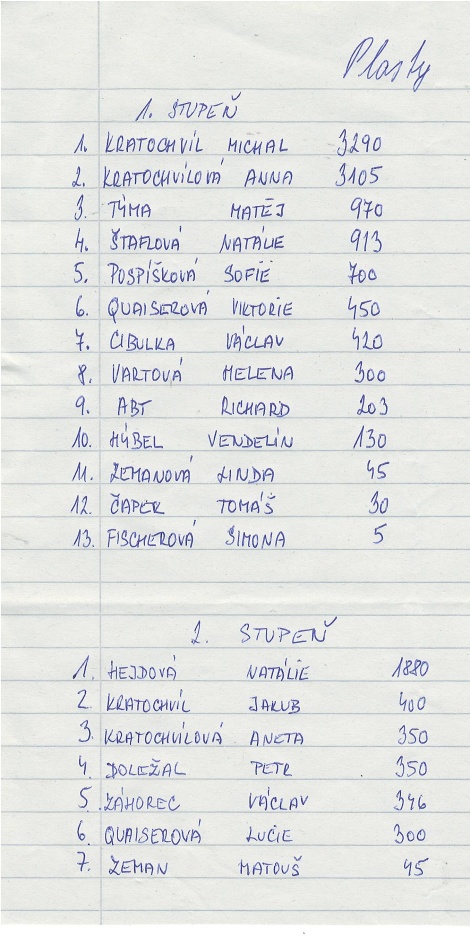 Plasty
1. STUPEŇ
1. KRATOCHVÍL MICHAL 3290
2. KRATOCHVÍLOVÁ ANNA 3105
3. TŮMA MATĚJ 970
4. ŠTAFLOVÁ NATÁLIE 913
5. POSPÍŠKOVÁ SOFIE 700
6. QUAISEROVÁ VIKTORIE 450
7. CIBULKA VÁCLAV 420
8. VARTOVÁ HELENA 300
9. ABT RICHARD 203
10. HÝBEL VENDELÍN 130
11. ZEMANOVÁ LINDA 45
12. ČAPEK TOMÁŠ 30
13. FISCHEROVÁ SIMONA 5
2. STUPEŇ
1. HEJDOVÁ NATÁLIE 1880
2. KRATOCHVÍL JAKUB 400
3. KRATOCHVÍLOVÁ ANETA 350
4. DOLEŽAL PETR 350
5. ZÁHOREC VÁCLAV 346
6. QUAISEROVÁ LUCIE 300
7. ZEMAN MATOUŠ 45